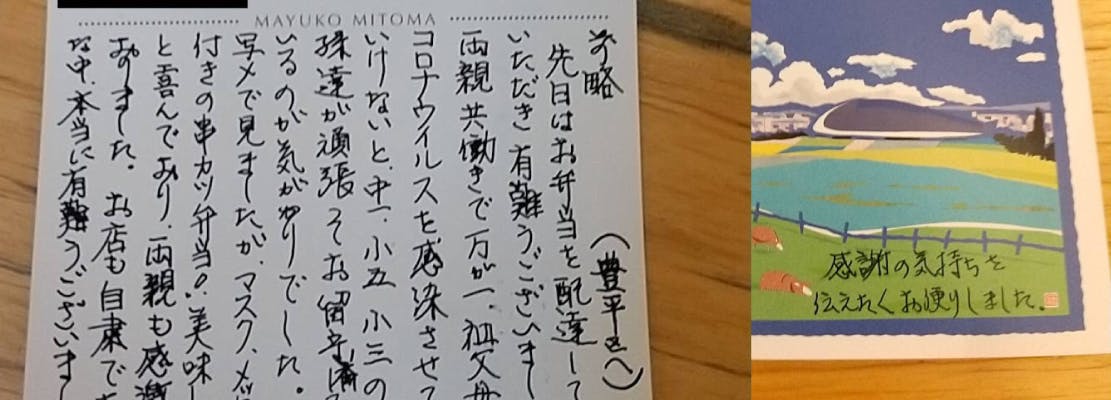 MAYUKO MITOMA
前略
(豊平区へ)
先日はお弁当を配達して
いただき有難うございまし
両親共働きで万が一、祖父母
コロナウイルスを感染させて
いけないと、中一、小五、小三の
孫達が頑張ってお留守
いるのが気がかりでした。
写メで見ましたが、マスク、メッ
付きの串カツ弁当!!美味し
と喜んでおり、両親も感激
おりました。お店も自粛で
な中、本当に有難うございまし
感謝の気持ちを
伝えたくお便りしました。